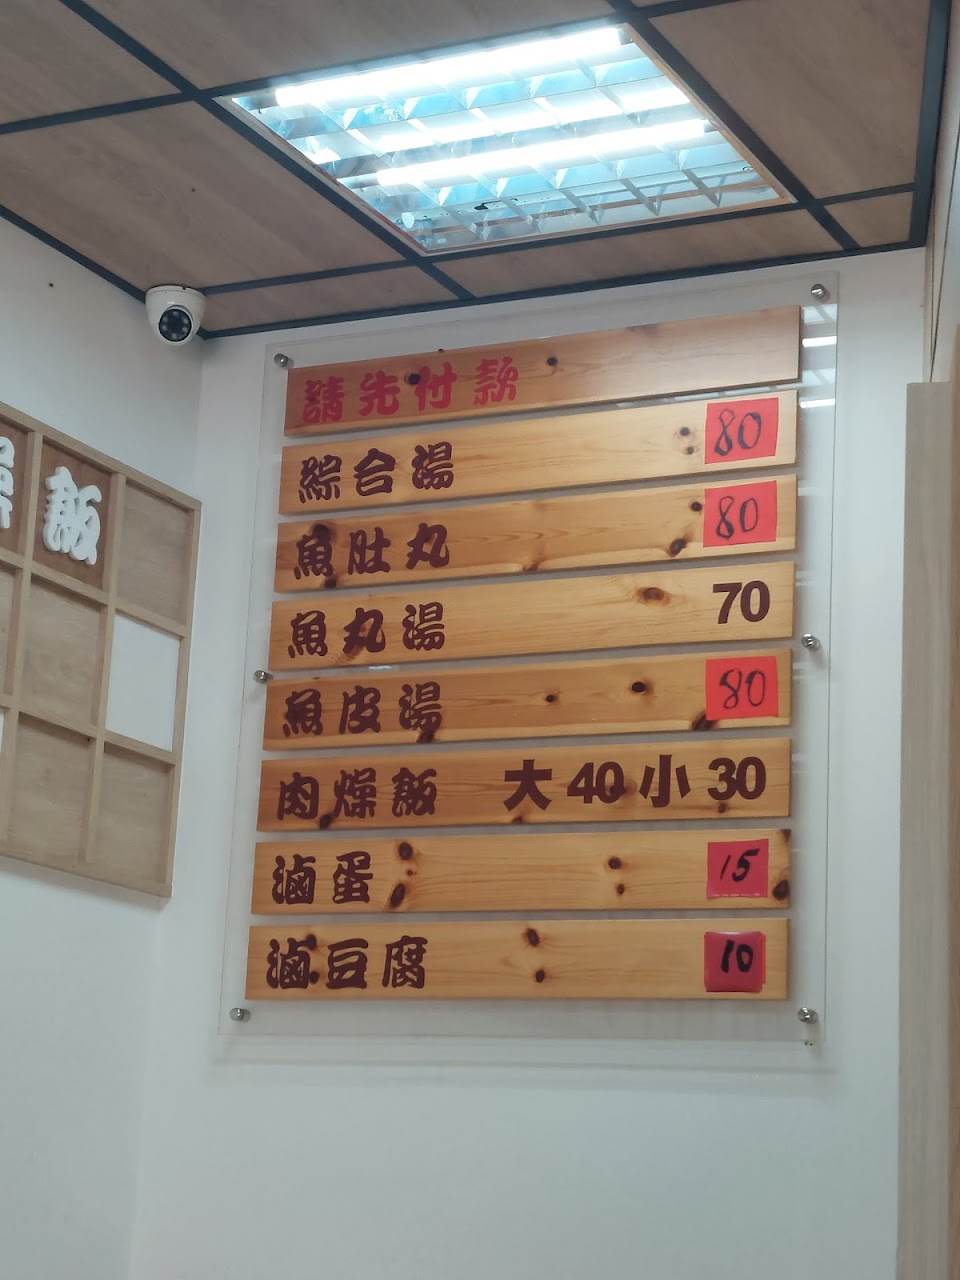 請先付款
綜合湯 80
魚肚丸 80
魚丸湯 70
魚皮湯 80
肉燥飯 大40小30
滷蛋 15
滷豆腐 10
燥飯